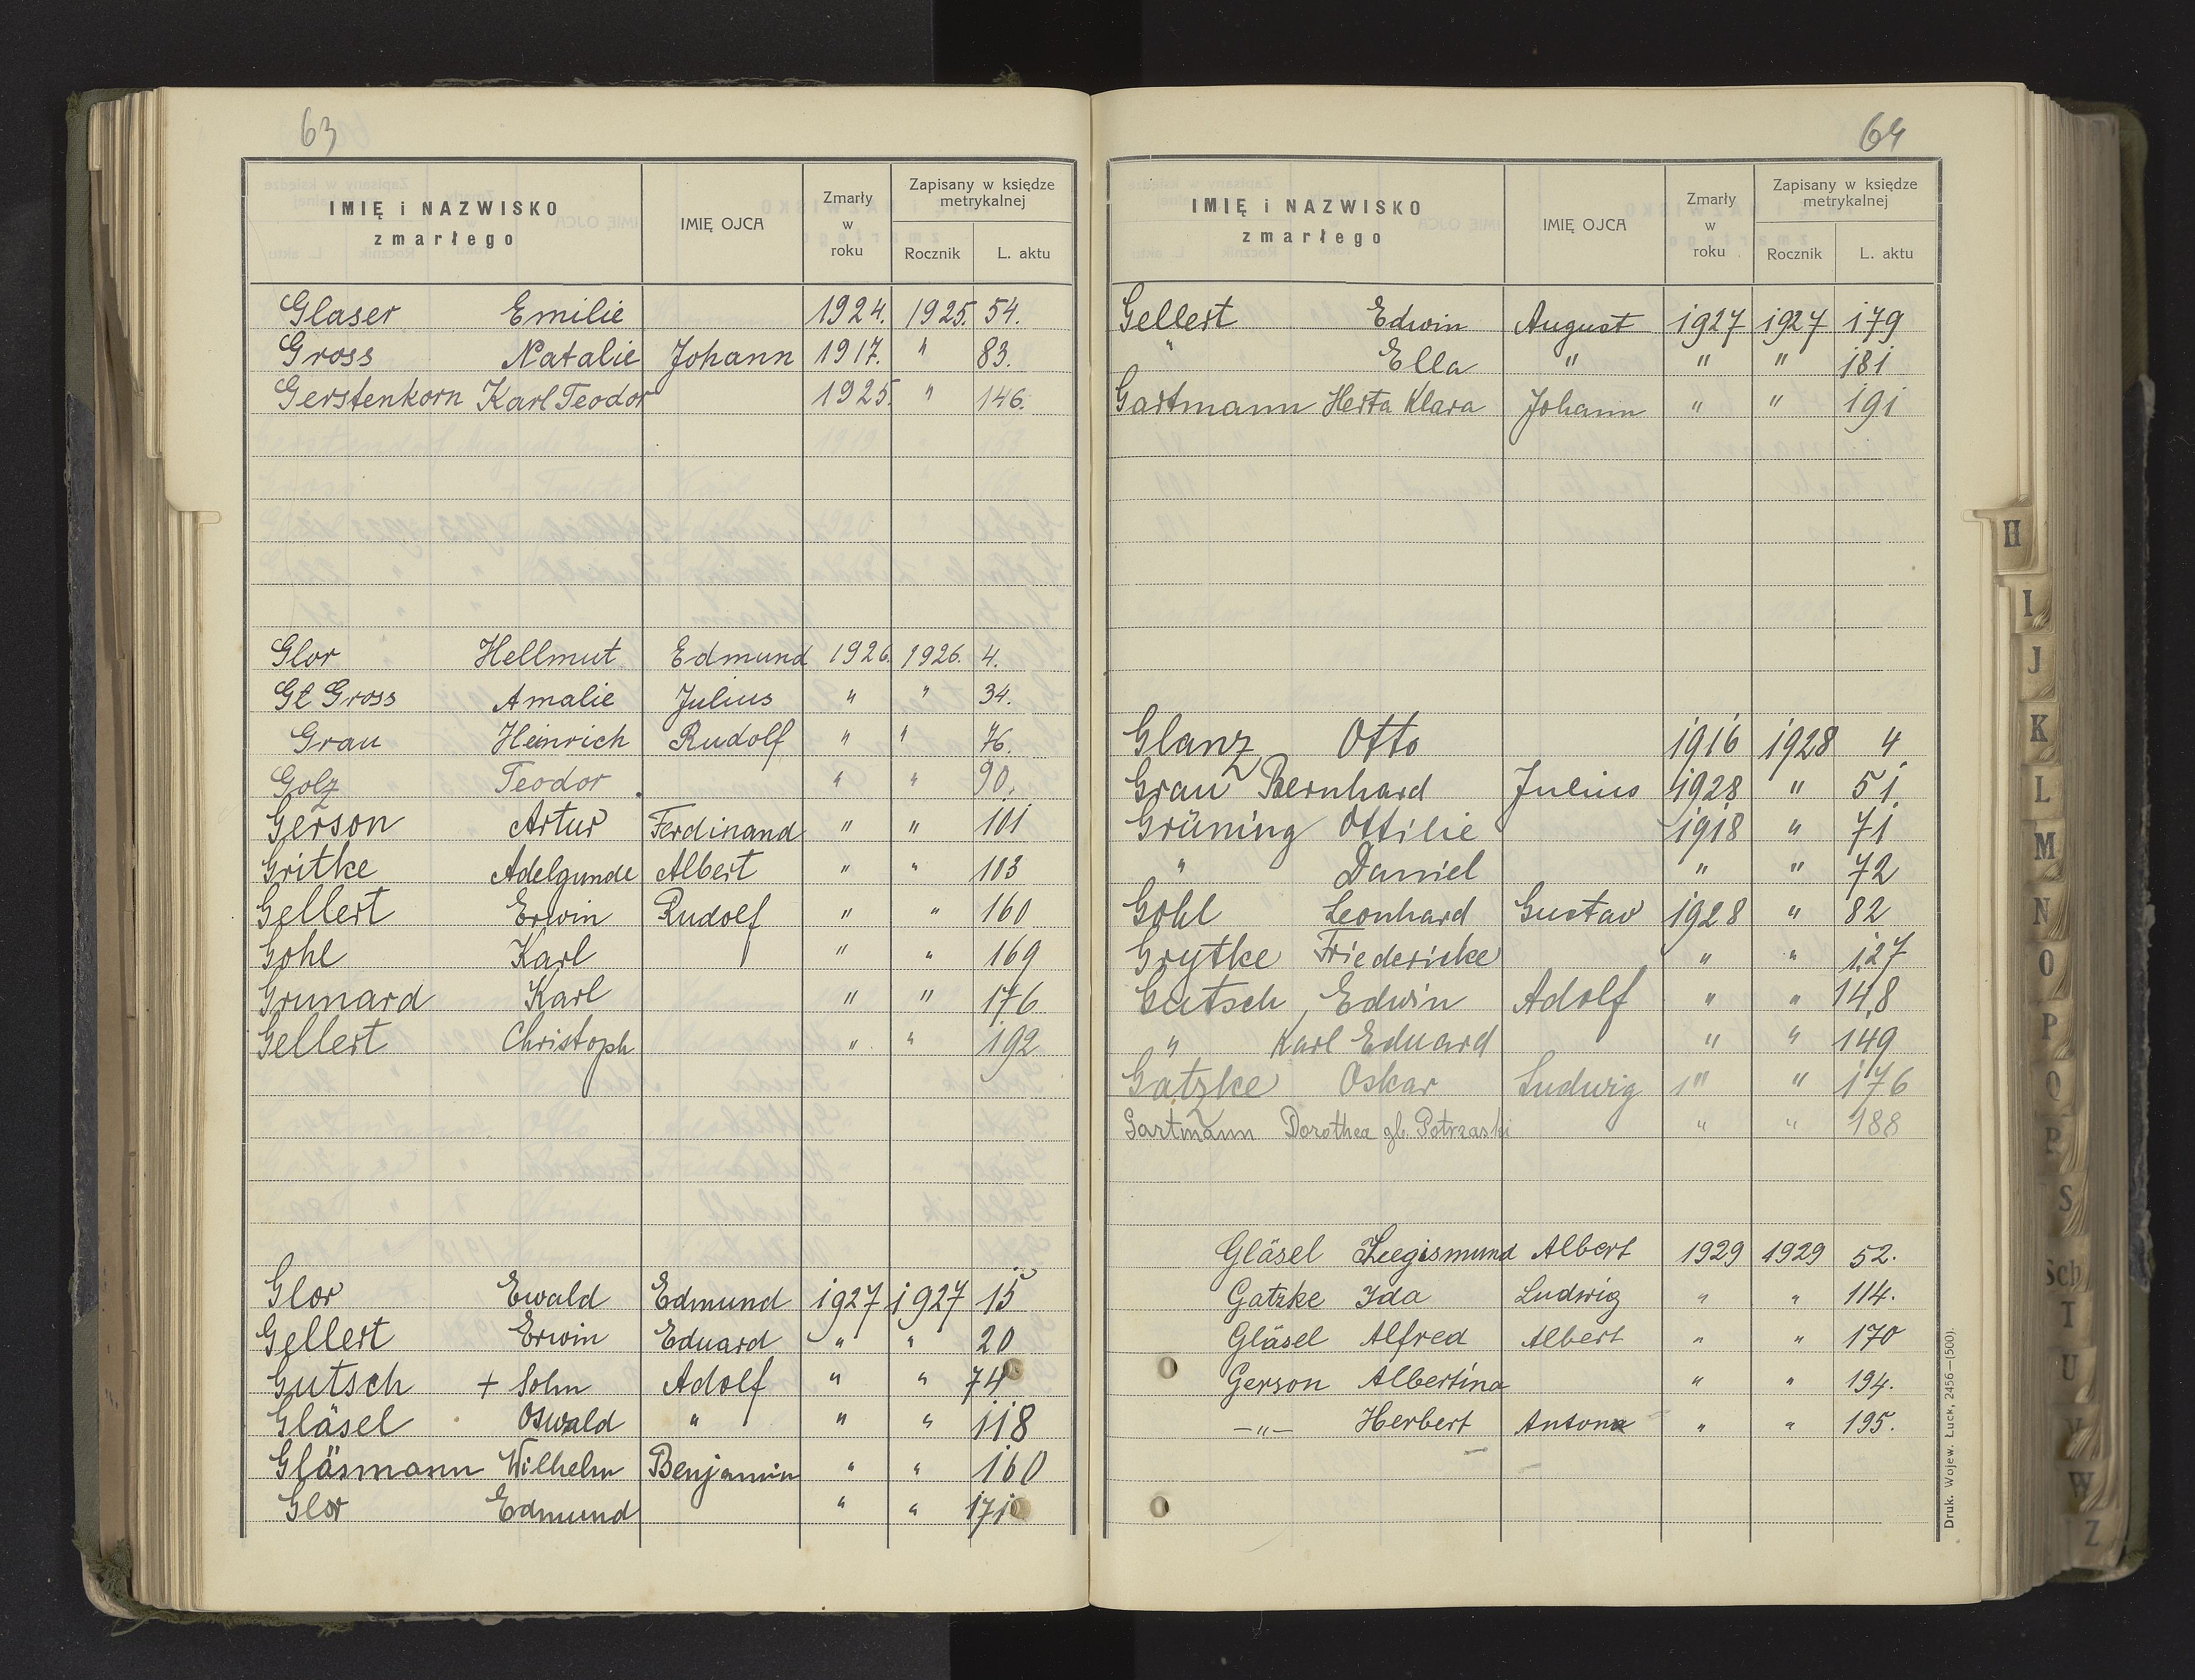 63
IMIĘ i NAZWISKO
zmarłego
IMIĘ OJCA
Zmarły
w
roku
Zapisany w księdze
metrykalnej
Rocznik
L. aktu
Glaser Emilie 1924. 1925. 54.
Gross Natalie Johann 1917. " 83.
Gerstenkorn Karl Teodor 1925. " 146.
Glor Hellmut Edmund 1926. 1926. 4.
Gross Amalie Julius " " 34.
Grau Heinrich Rudolf " " 76.
Golz Teodor " " 90.
Gerson Artur Ferdinand " " 101
Gritke Adelgunde Albert " " 103
Gellert Erwin Rudolf " " 160
Gohl Karl " " 169
Grunard Karl " " 176
Gellert Christoph " " 192
Glor Ewald Edmund 1927 1927 15
Gellert Erwin Eduard " " 20
Gutsch + Sohn Adolf " " 74
Gläsel Oswald " " " 118
Gläsmann Wilhelm Benjamin " " 160
Glor Edmund " " 171
64
IMIĘ i NAZWISKO
zmarłego
IMIĘ OJCA
Zmarły
w
roku
Zapisany w księdze
metrykalnej
Rocznik
L. aktu
Gellert Edwin August 1927 1927 179
" Ella " " " 181
Gartmann Herta Klara Johann " " 191
Glanz Otto 1916 1928 4
Grau Bernhard Julius 1928 " 51
Grüning Ottilie 1918 " 71
" Daniel " " 72
Gohl Leonhard Gustav 1928 " 82
Grytke Friedericke " " 127
Gutsch, Edwin Adolf " " 148
" Karl Eduard " " 149
Gatzke Oskar Ludwig " " 176
Gartmann Dorothea gb. Potrzaski " " 188
Gläsel Albert 1929 1929 52.
Gatzke Ida Ludwig " " 114.
Gläsel Alfred Albert " " 170
Gerson Albertina " " 194.
—"— Herbert Anton " " 195.
Druk. Wojew. Łuck, 2456—(500).
H
I
J
K
L
M
N
O
P
Q
R
S
Sch
T
U
V
W
Z